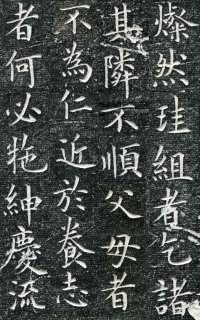 燦然珪組者乞諸
其隣不順父母者
不為仁近於養志
者何必拖紳慶流